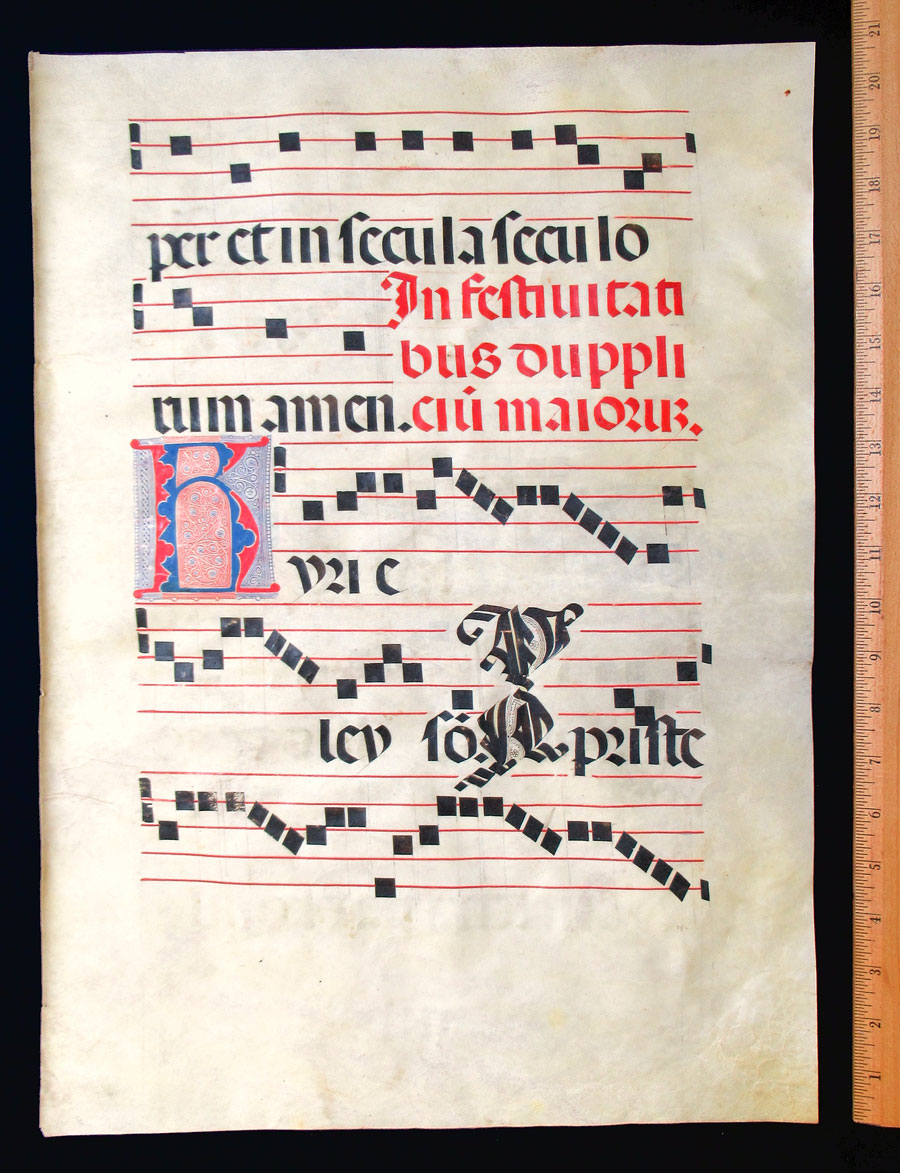 per et in secula seculo
In festiuitati
bus duppli
rum amen. ciũ maioruʒ.
Kyri e
ley sõ Xpriste
21
20
19
18
17
16
15
14
13
12
11
10
9
8
7
6
5
4
3
2
1